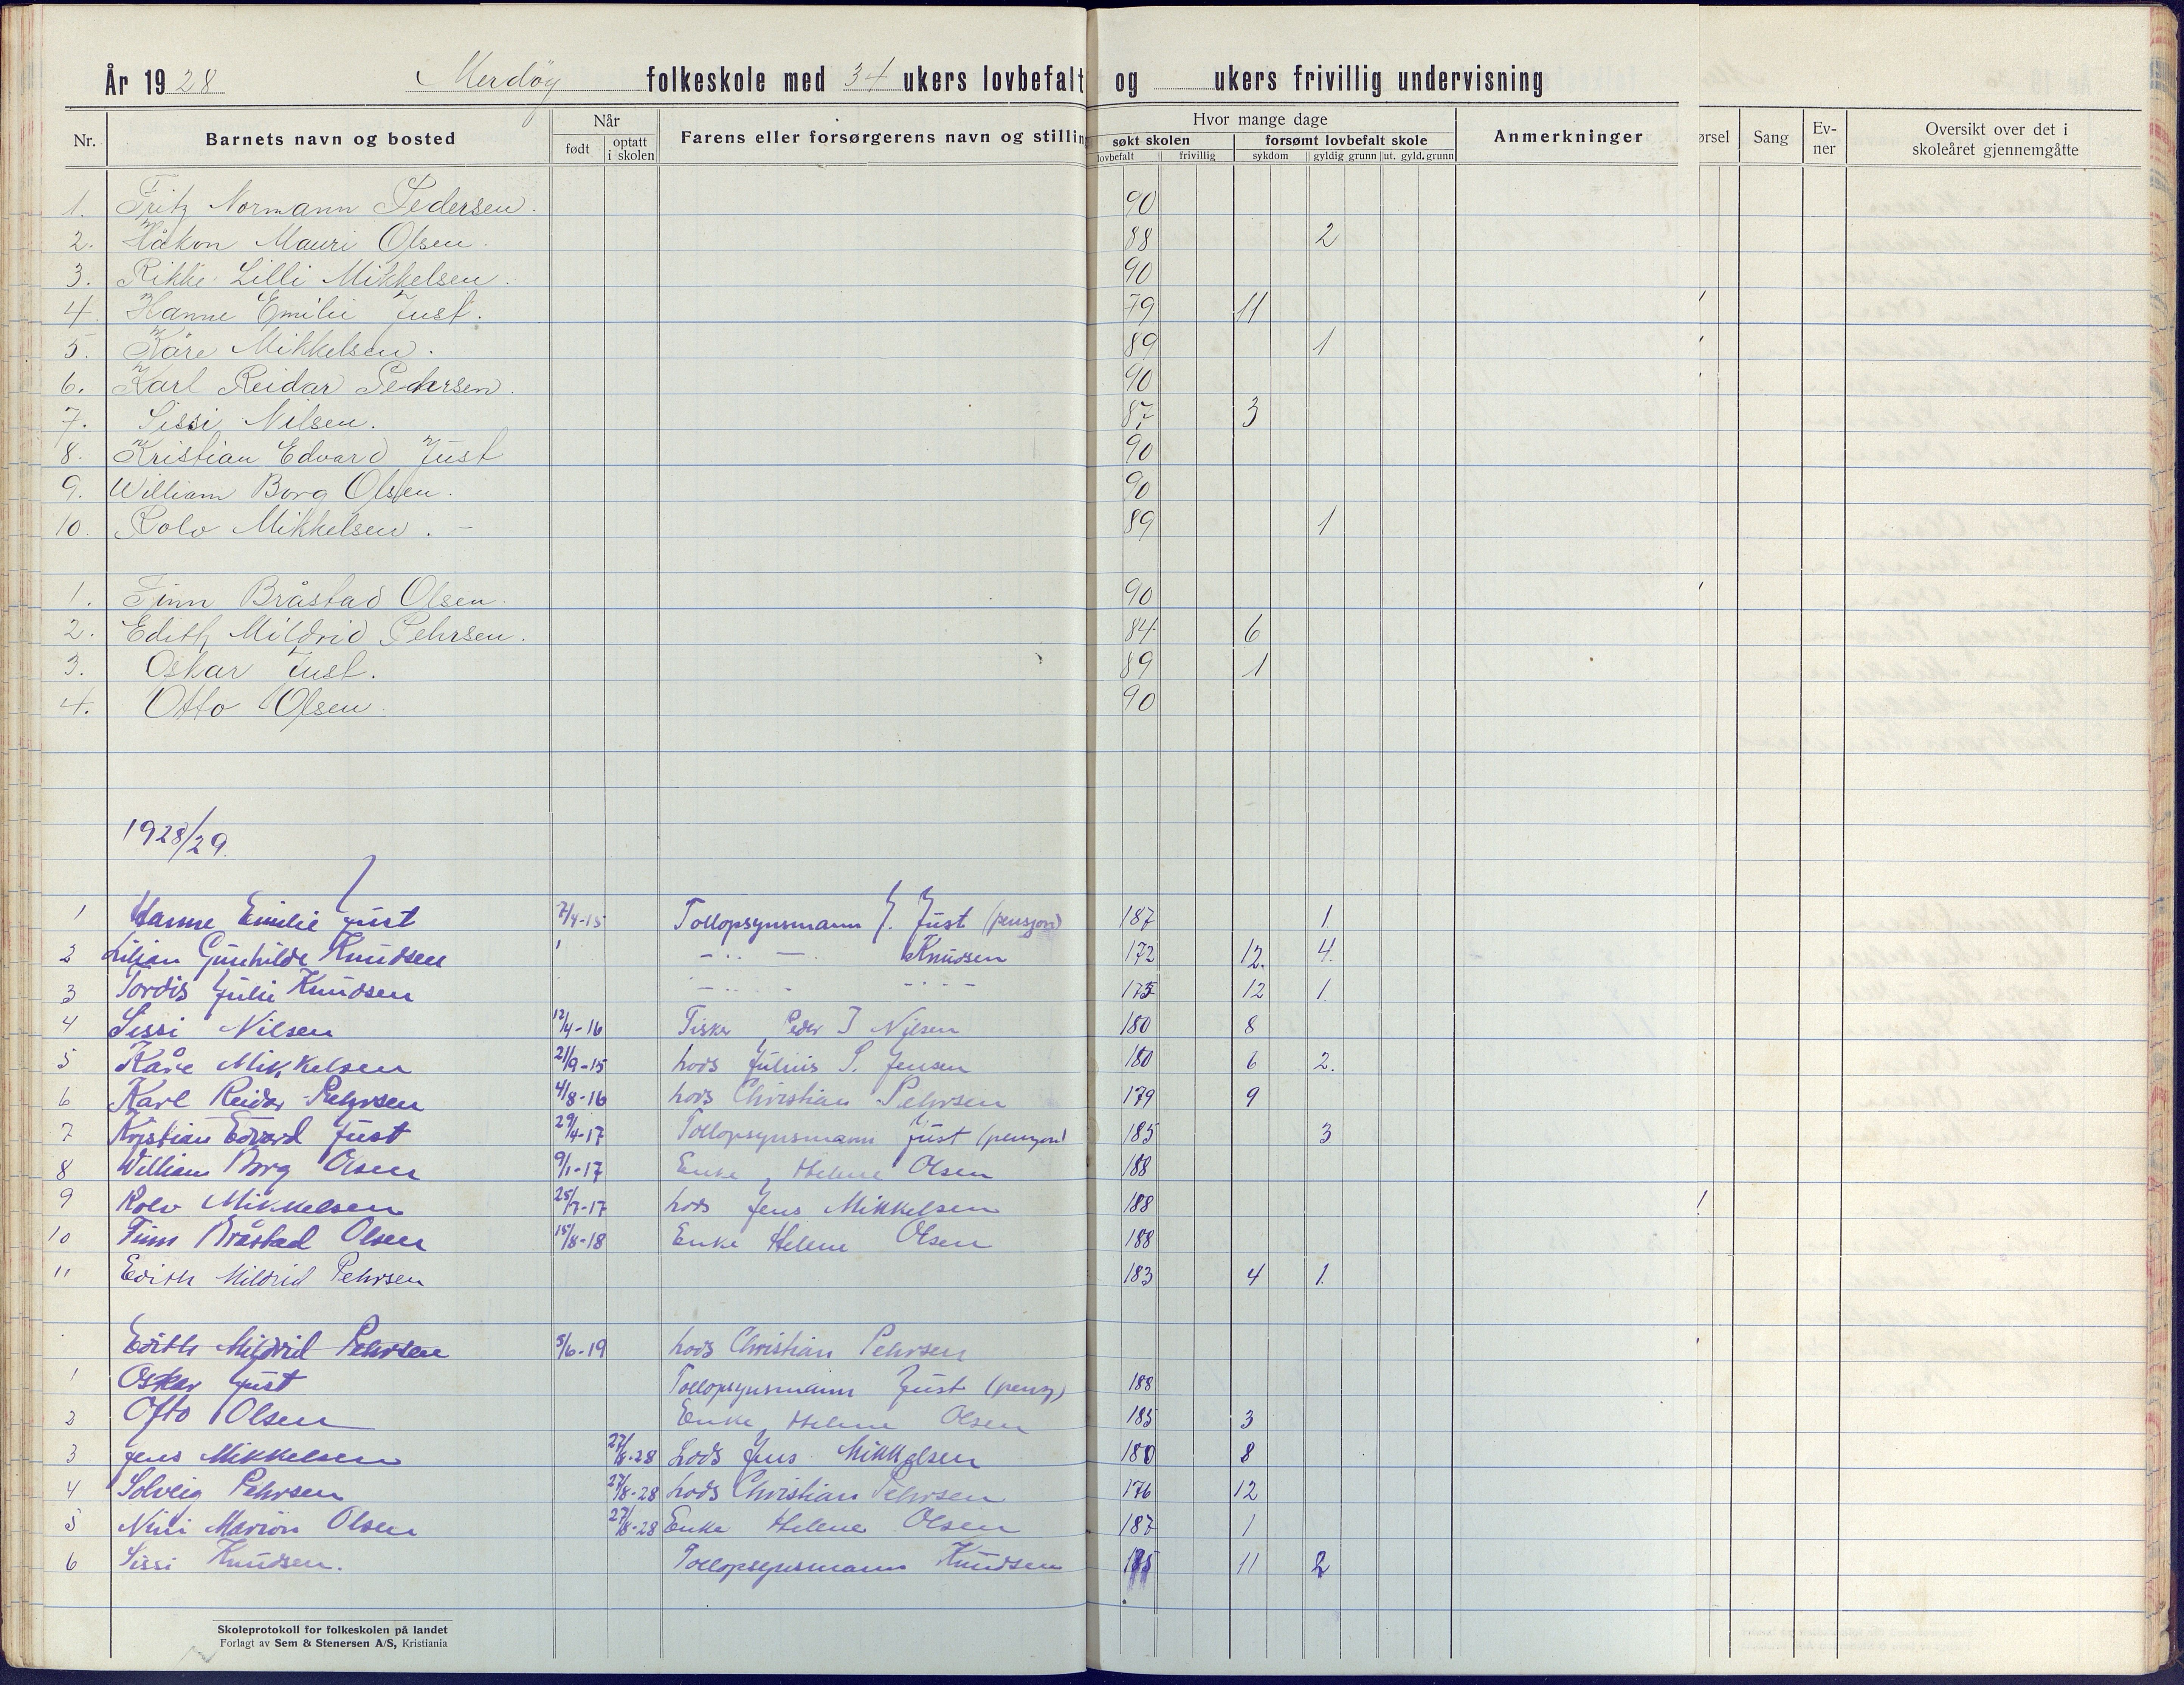 År 1928 Merdöy folkeskole med 34 ukers lovbefalt og ukers frivillig undervisning
Nr. Barnets navn og bosted Når født optatt i skolen Farens eller forsørgerens navn og stillin Hvor mange dage søkt skolen lovbefalt frivillig forsømt lovbefalt skole sykdom gyldig grunn ut. gyld. grunn Anmerkninger ørsel Sang Ev-ner Oversikt over det i skoleåret gjennemgåtte
1. Fritz Normann Pedersen. 90
2. Håkon Mauri Olsen. 88 2
3. Rikke Lilli Mikkelsen. 90
4. Hanne Emilie Just. 79 11
5. Kåre Mikkelsen. 89 1
6. Karl Reidar Pehrsen. 90
7. Sissi Nilsen. 87 3
8. Kristian Edvard Just 90
9. William Borg Olsen. 90
10. Rolv Mikkelsen. - 89 1
1. Finn Bråstad Olsen. 90
2. Edith Mildrid Pehrsen. 84 6
3. Oskar Just. 89 1
4. Otto Olsen. 90
1928/29.
1 Hanne Emilie Just 7/4-15 Tollopsynsmann J. Just (pensjon) 187 1.
2 Lilian Gunhilde Knudsen Knudsen 172 12. 4.
3 Tordis Julie Knudsen 175 12 1.
4 Sissi Nilsen 12/4-16 Fisker Peder J Nilsen 180 8
5 Kåre Mikkelsen 21/9-15 Lods Julius S. Jensen 180 6 2.
6 Karl Reidar Pehrsen 4/8-16 Lods Christian Pehrsen 179 9
7 Kristian Edvard Just 29/4-17 Tollopsynsmann Just (pensjon) 185 3
8 William Borg Olsen 9/1-17 Enke Helene Olsen 188
9 Rolv Mikkelsen 25/7-17 Lods Jens Mikkelsen 188
10 Finn Bråstad Olsen 15/8-18 Enke Helene Olsen 188
11 Edith Mildrid Pehrsen 183 4 1.
Edith Mildrid Pehrsen 5/6-19 Lods Christian Pehrsen
1 Oskar Just Tollopsynsmann Just (pensj) 188
2 Otto Olsen Enke Helene Olsen 185 3
3 Jens Mikkelsen 27/8-28 Lods Jens Mikkelsen 180 8
4 Solveig Pehrsen 27/8-28 Lods Christian Pehrsen 176 12
5 Nini Marion Olsen 27/8-28 Enke Helene Olsen 187 1
6 Sissi Knudsen. Tollopsynsmann Knudsen 175 11 2
Skoleprotokoll for folkeskolen på landet
Forlagt av Sem & Stenersen A/S, Kristiania